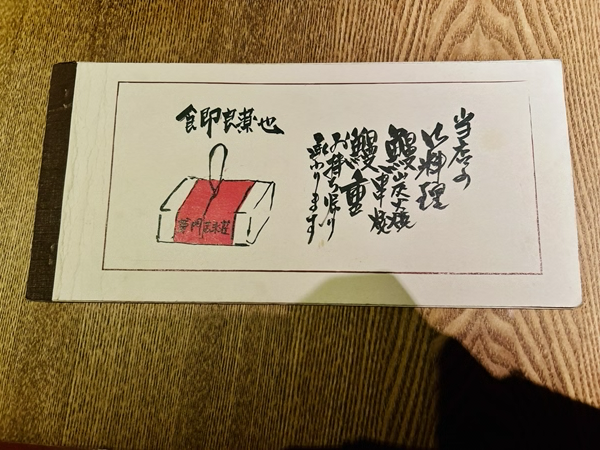 当店の
お料理
鰻炭火焼
串焼
鰻重
お持ち帰り
承わります
食即良薬也